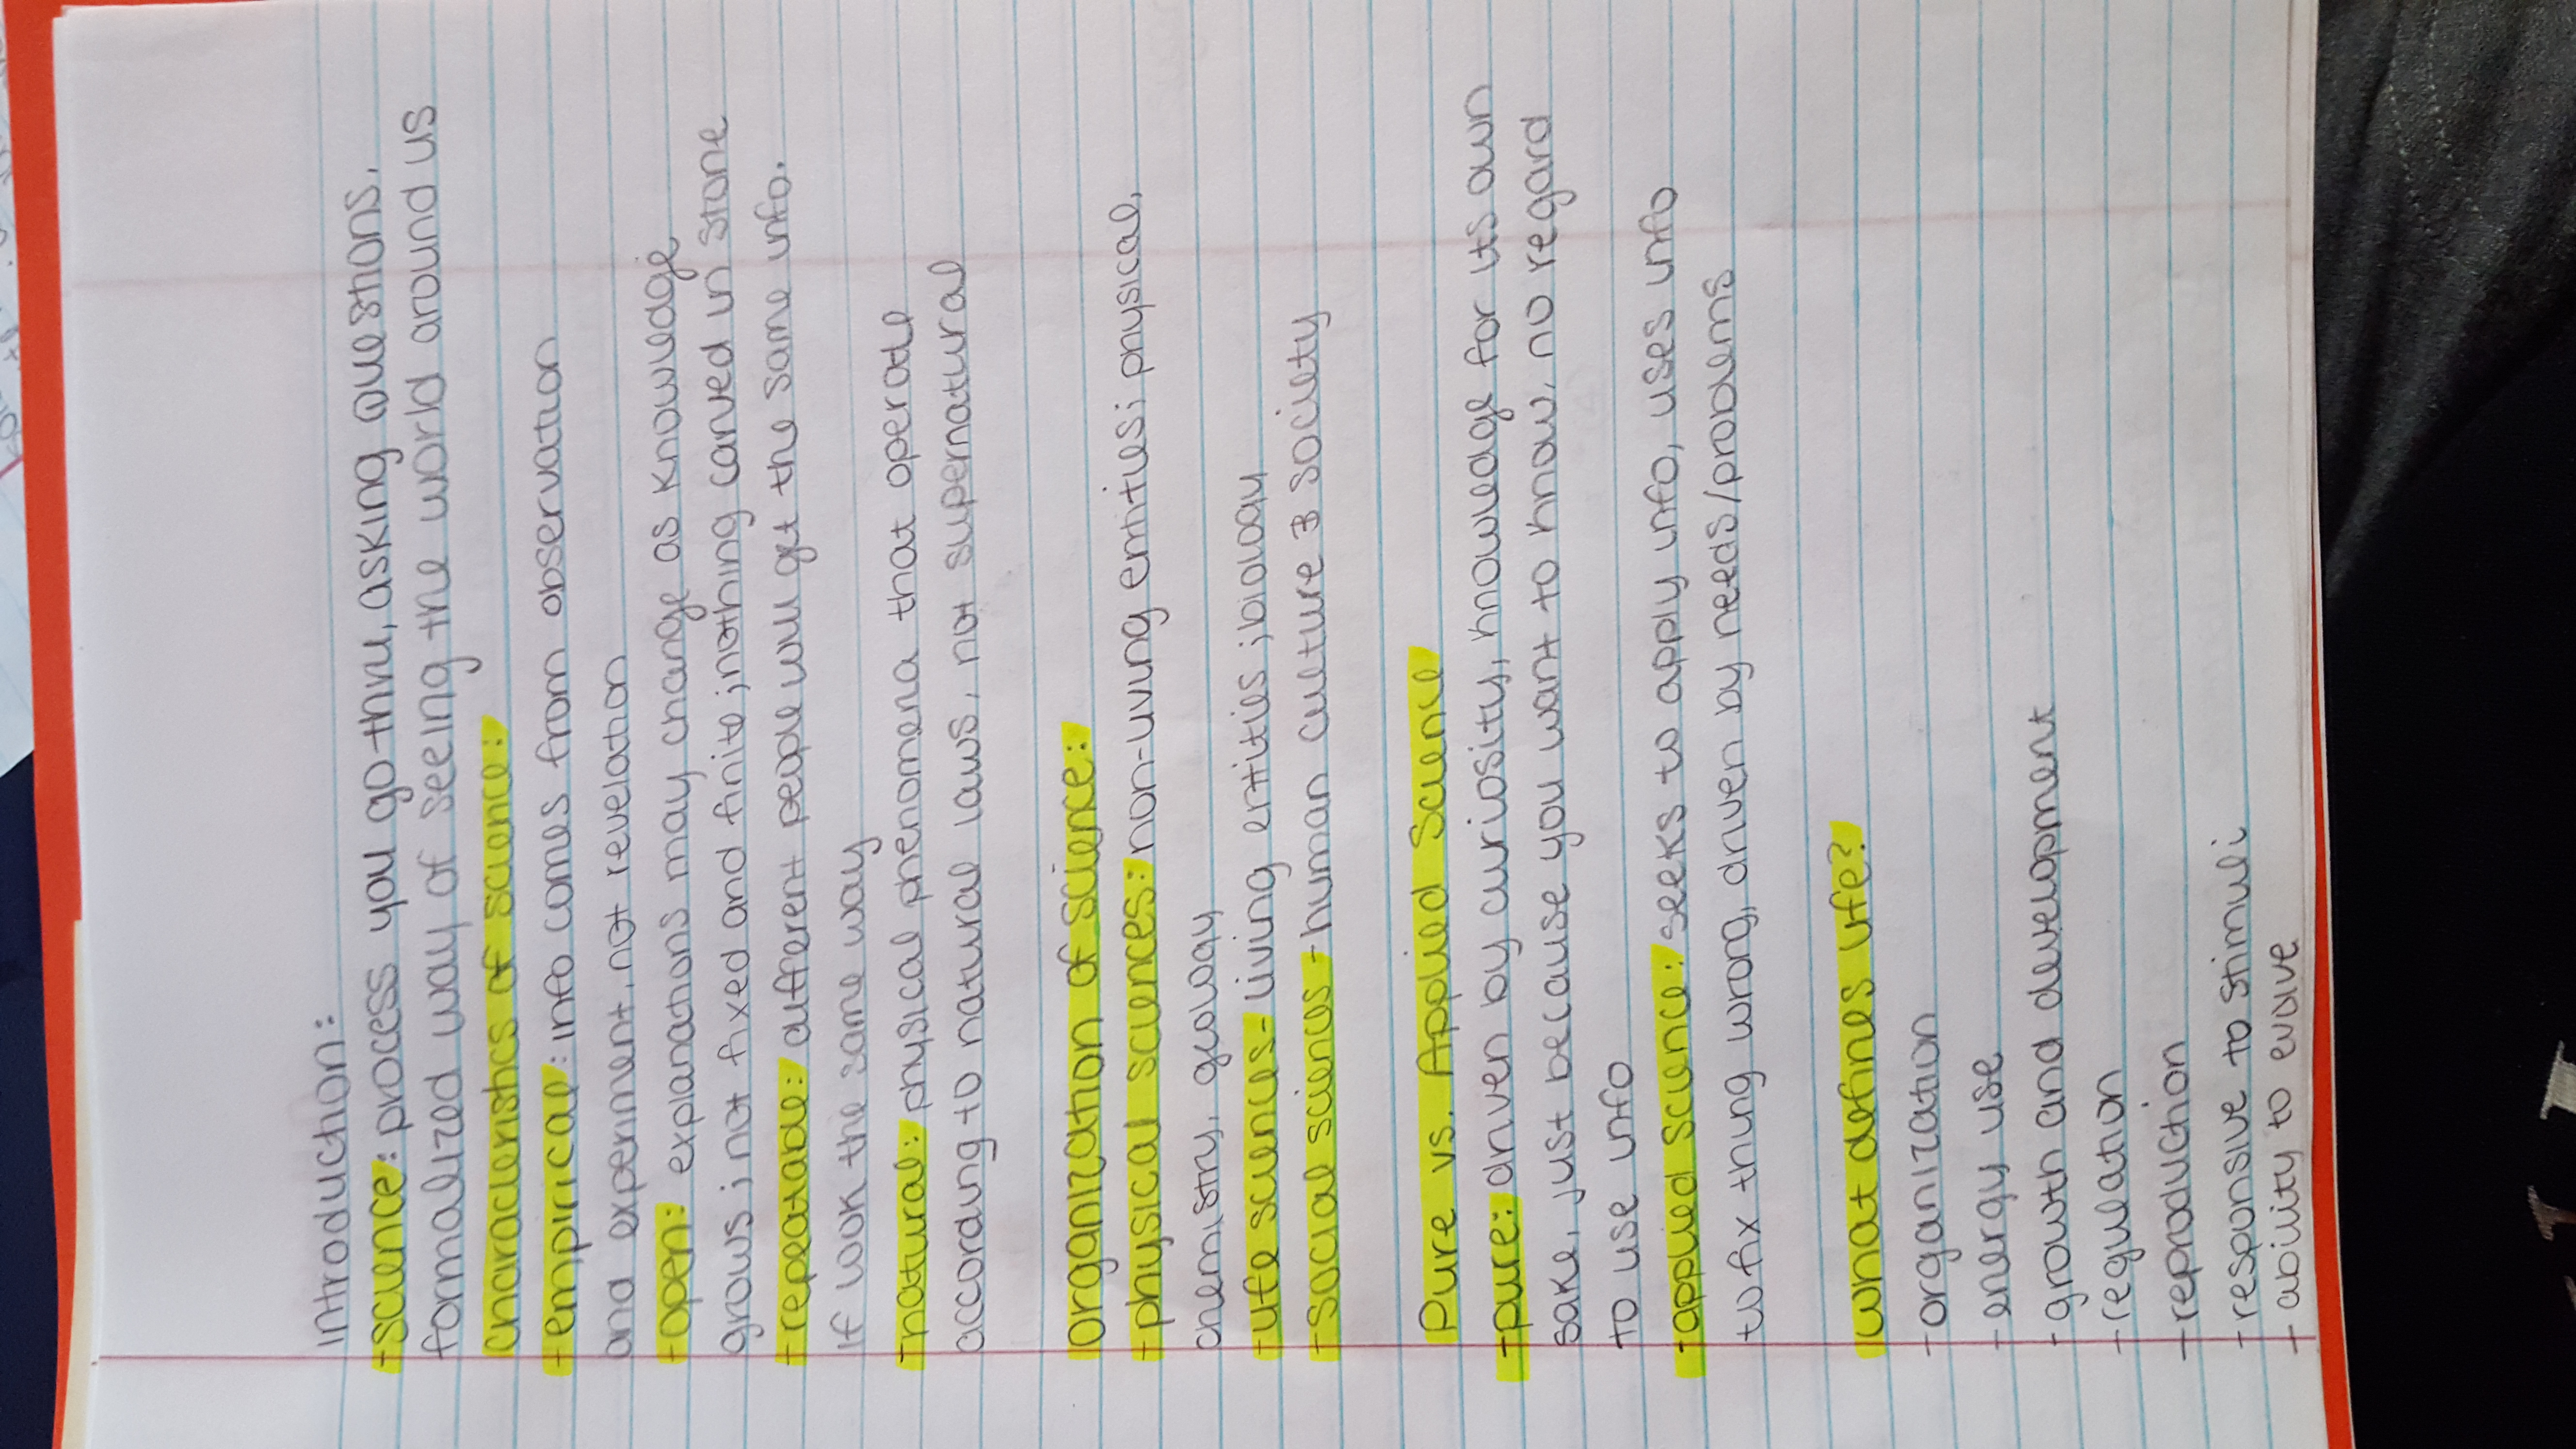 introduction:
-science: process you go thru, asking questions.
formalized way of seeing the world around us
characteristics of science:
-empirical: info comes from observation
and experiment, not revelation
-open: explanations may change as knowledge
grows; not fixed and finite; nothing carved in stone
-repeatable: different people will get the same info.
if look the same way
-natural: physical phenomena that operate
according to natural laws, not supernatural
organization of science:
-physical sciences: non-living entities; physical,
chemistry, geology
-life sciences- living entities; biology
-social sciences- human culture & society
Pure vs. Applied Science
-pure: driven by curiosity, knowledge for its own
sake, just because you want to know, no regard
to use info
-applied science: seeks to apply info, uses info
to fix thing wrong, driven by needs/problems
what defines life?
-organization
-energy use
-growth and development
-regulation
-reproduction
-responsive to stimuli
-ability to evolve